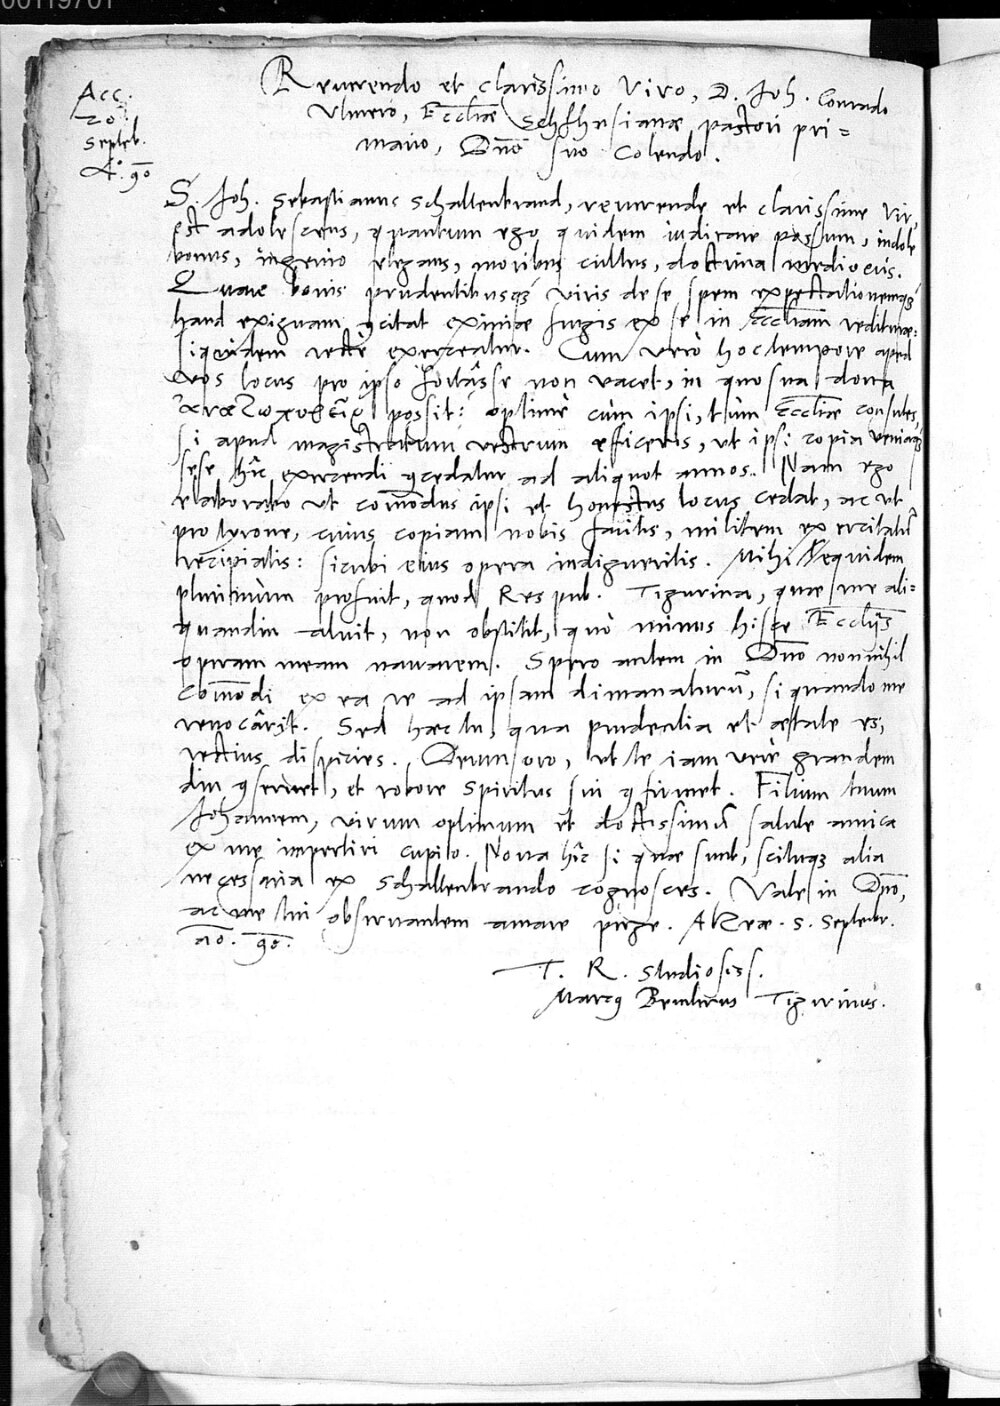 00119701
Acc.
20.
Septeb.
Aº. 90
Reverendo et clarissimo Viro, D. Joh. Conrado
Ulmero, Eccliæ Schfhusianæ pastori pri=
mario, Dño suo colendo.
S. Joh. Sebastianus Schallenbrand, reverende et clarissime Vir,
est adolescens, quantum ego quidem iudicare possum, indole
bonus, ingenio elegans, moribus cultus, doctrina mediocris.
Quare bonis prudentibusq; viris de se spem expectationemq;
haud exiguam ꝯcitat eximiæ frugis ex se in Eccliam redituræ:
siquidem recte exerceatur. Cum verò hoc tempore apud
vos locus pro ipso fortasse non vacet, in quo sua dona
possit: optimè cùm ipsi, tùm Eccliæ consules,
si apud magistratum vestrum effeceris, ut ipsi copia
sese hîc exercendi ꝯcedatur ad aliquot annos. Nam ego
elaborabo ut com̃odus ipsi et honestus locus cedat, ac ut
pro tyrone, cuius copiam nobis facitis, militem exercitatũ
recipiatis: sicubi eius opera indigueritis. Mihi equidem
plurimùm profuit, quod Respub. Tigurina, quæ me ali=
quandiu aluit, non obstitit, quò minus hisce Ecclijs
operam meam navarem. Spero autem in Dño nonnihil
com̃odi ex ea re ad ipsam dimanaturũ, si quando me
revocârit. Sed hæc tu, qua prudentia et ætate es,
rectius dispicies. Deum oro, ut te iam verè grandem
diu ꝯservet, et robore Spiritus sui ꝯfirmet. Filium tuum
Johannem, virum optimum et doctissimũ salute amica
ex me impertiri cupio. Nova hîc si quæ sunt, scituq; alia
necessaria ex Schallenbrando cognosces. Vale in Dño,
ac me tui observantem amare perge. Alzeæ. 5. Septebr.
aõ. 90.
T. R. studiosiss.
Marcꝯ Beumlerus Tigurinus.